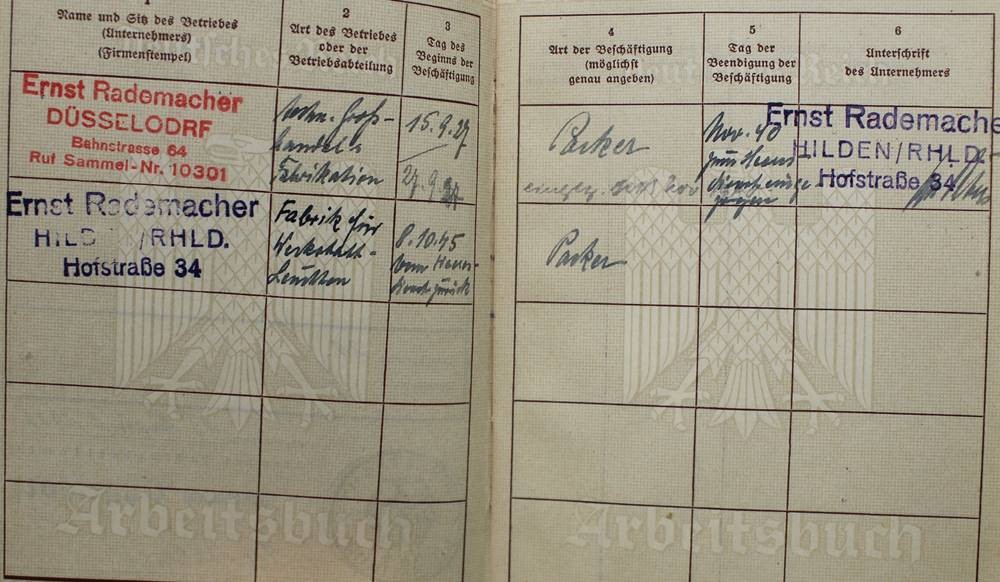 1
Name und Sitz des Betriebes
(Unternehmers)
(Firmenstempel)
2
Art des Betriebes
oder der
Betriebsabteilung
3
Tag des
Beginns der
Beschäftigung
4
Art der Beschäftigung
(möglichst
genau angeben)
5
Tag der
Beendigung der
Beschäftigung
6
Unterschrift
des Unternehmers
Ernst Rademacher
DÜSSELODRF
Bahnstrasse 64
Ruf Sammel-Nr. 10301
Groß-
handel
Fabrikation
15.9.27
27.9.
Packer
Nov. 40
zum Heeres
Ernst Rademache
HILDEN/RHLD.
Hofstraße 34
Ernst Rademacher
HILD /RHLD.
Hofstraße 34
Fabrik für
Werkstatt-
Leuchten
8.10.45
vom Heeres-
dienst zurück
Packer
Arbeitsbuch
Arbeitsbuch